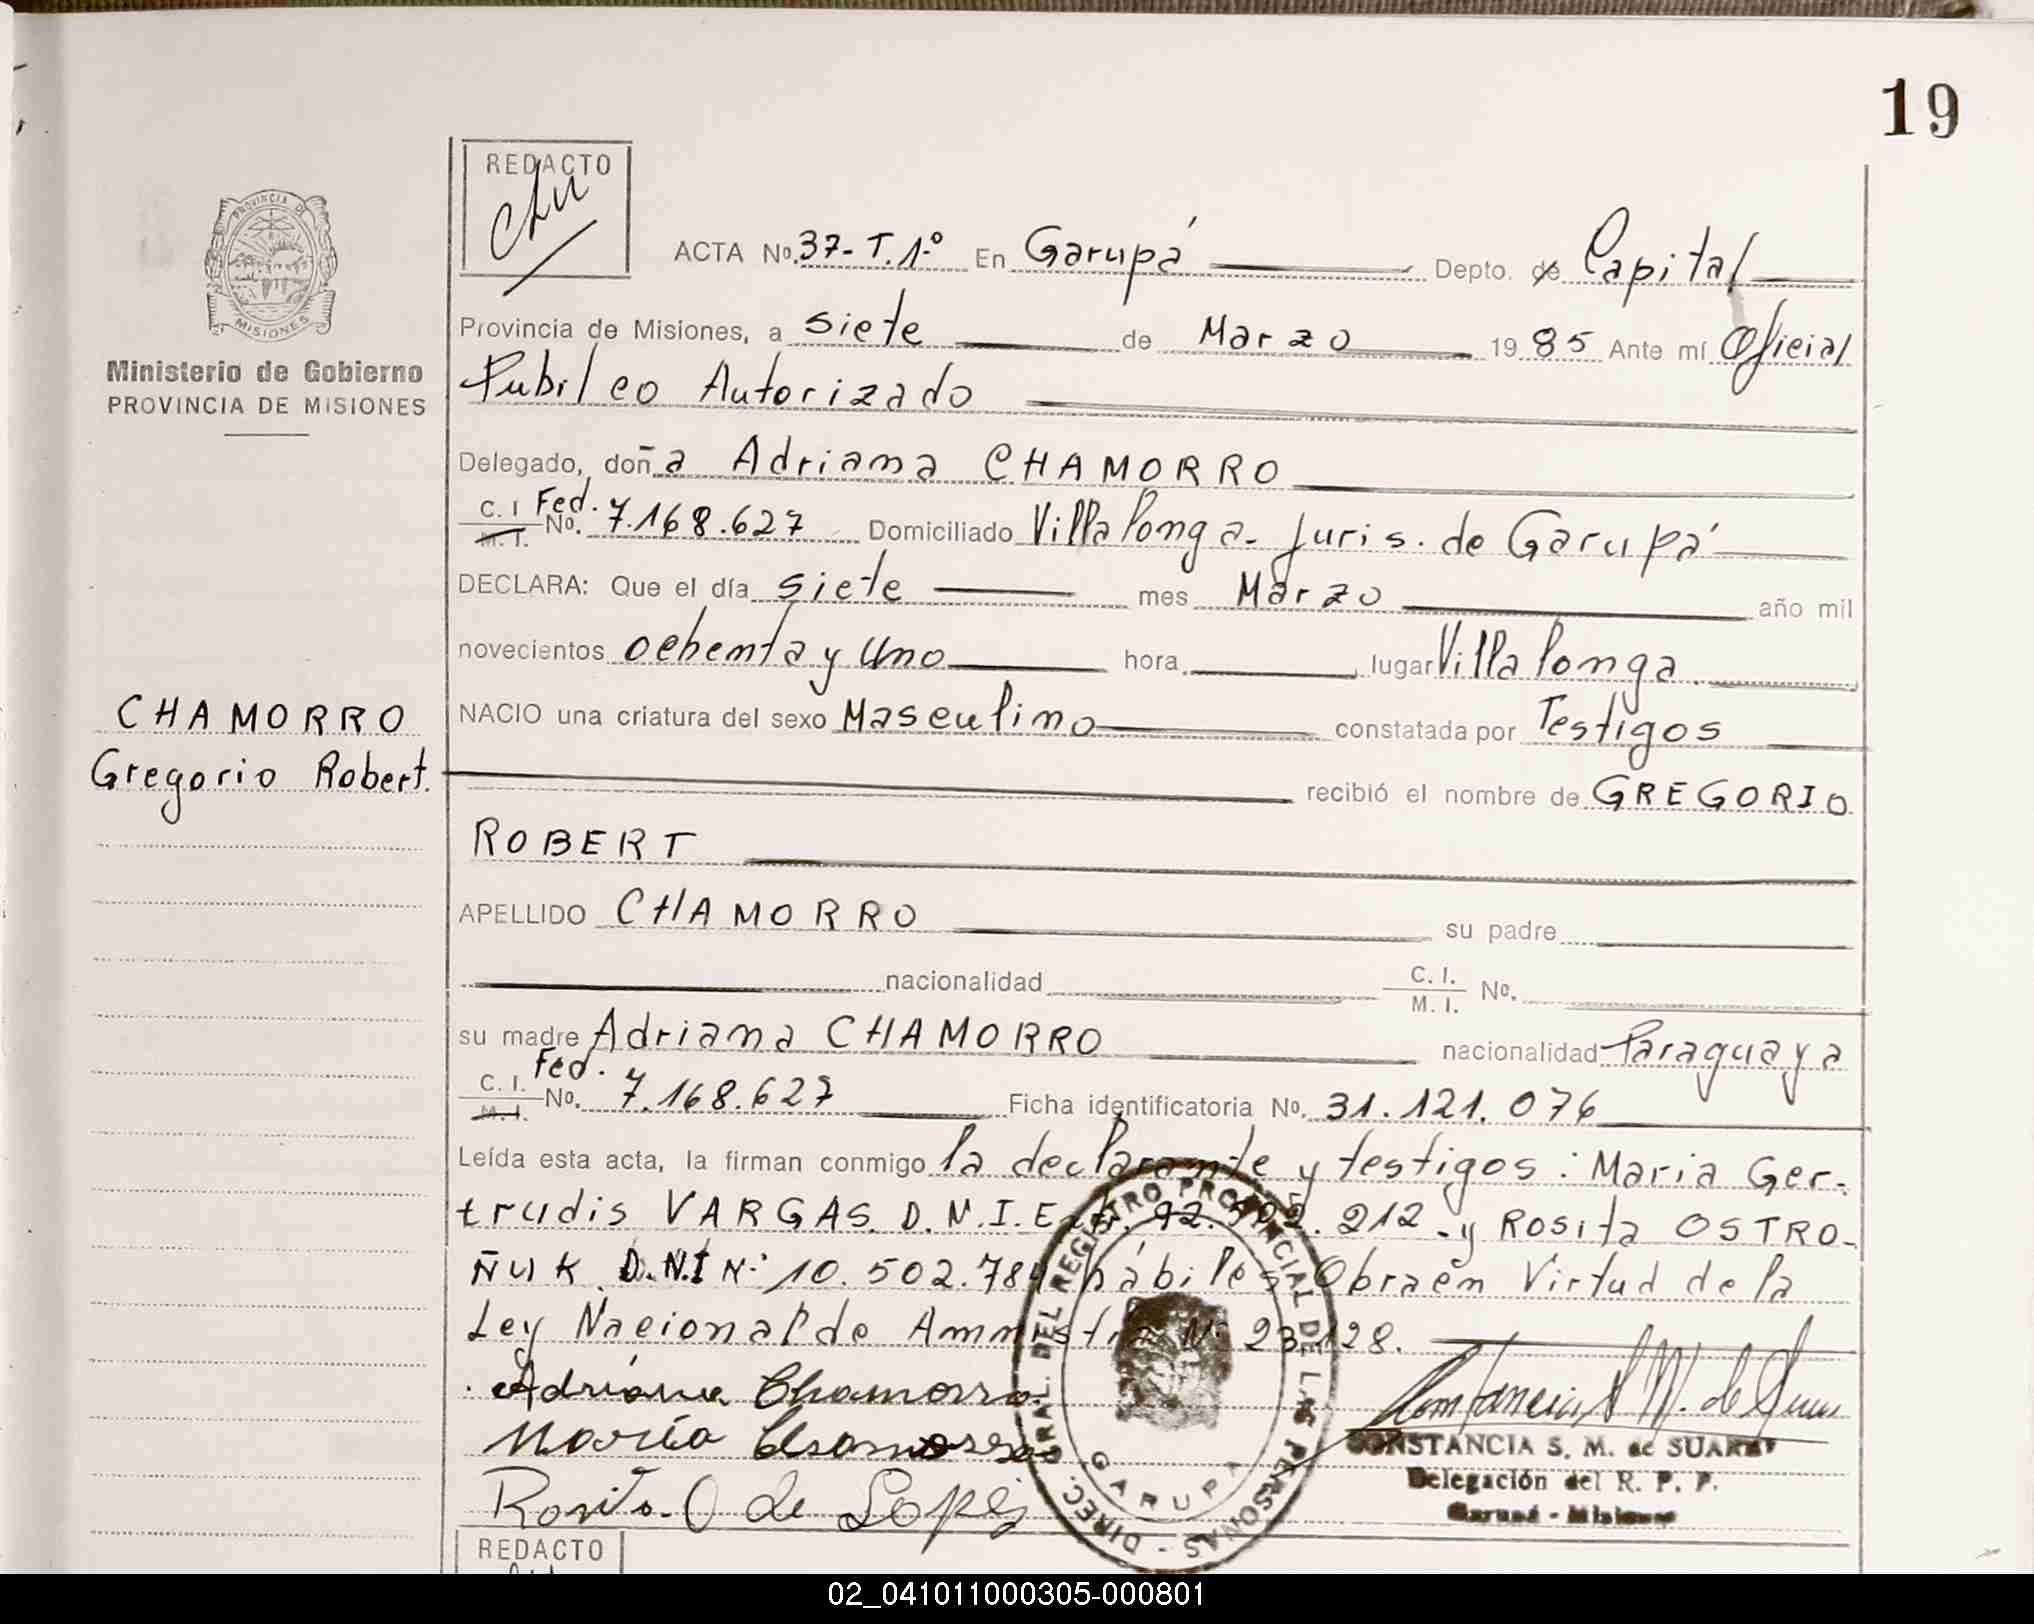 19
REDACTO
ACTA No. 37-T.1.º En Garupá Depto. de Capital
Provincia de Misiones, a siete de Marzo 1985 Ante mí Oficial
Publico Autorizado
Delegado, doña Adriana CHAMORRO
C. I. Fed. No. 7.168.627 Domiciliado Villalonga - Juris. de Garupá
M. I.
DECLARA: Que el día siete mes Marzo año mil
novecientos ochenta y uno hora lugar Villalonga.
NACIO una criatura del sexo Masculino constatada por Testigos
recibió el nombre de GREGORIO
ROBERT
APELLIDO CHAMORRO su padre
nacionalidad C. I. No.
M. I.
su madre Adriana CHAMORRO nacionalidad Paraguaya
C. I. Fed. No. 7.168.627 Ficha identificatoria No. 31.121.076
M. I.
Leída esta acta, la firman conmigo la declarante y testigos: Maria Ger-
trudis VARGAS. D.N.I. Extr. 92. 212 - y Rosita OSTRO-
ÑUK D.N.I Nº 10.502.784 hábiles Obra en Virtud de la
Ley Nacional de Amnistia Nº 23.128.
Adriana Chamorro
María Chamorro
Rosita O de Lopez
CONSTANCIA S. M. de SUAREZ
Delegación del R. P. P.
Garupá - Misiones
DIREC. GRAL. DEL REGISTRO PROVINCIAL DE LAS PERSONAS -
GARUPA
REDACTO
PROVINCIA DE MISIONES
Ministerio de Gobierno
PROVINCIA DE MISIONES
CHAMORRO
Gregorio Robert.
02_041011000305-000801